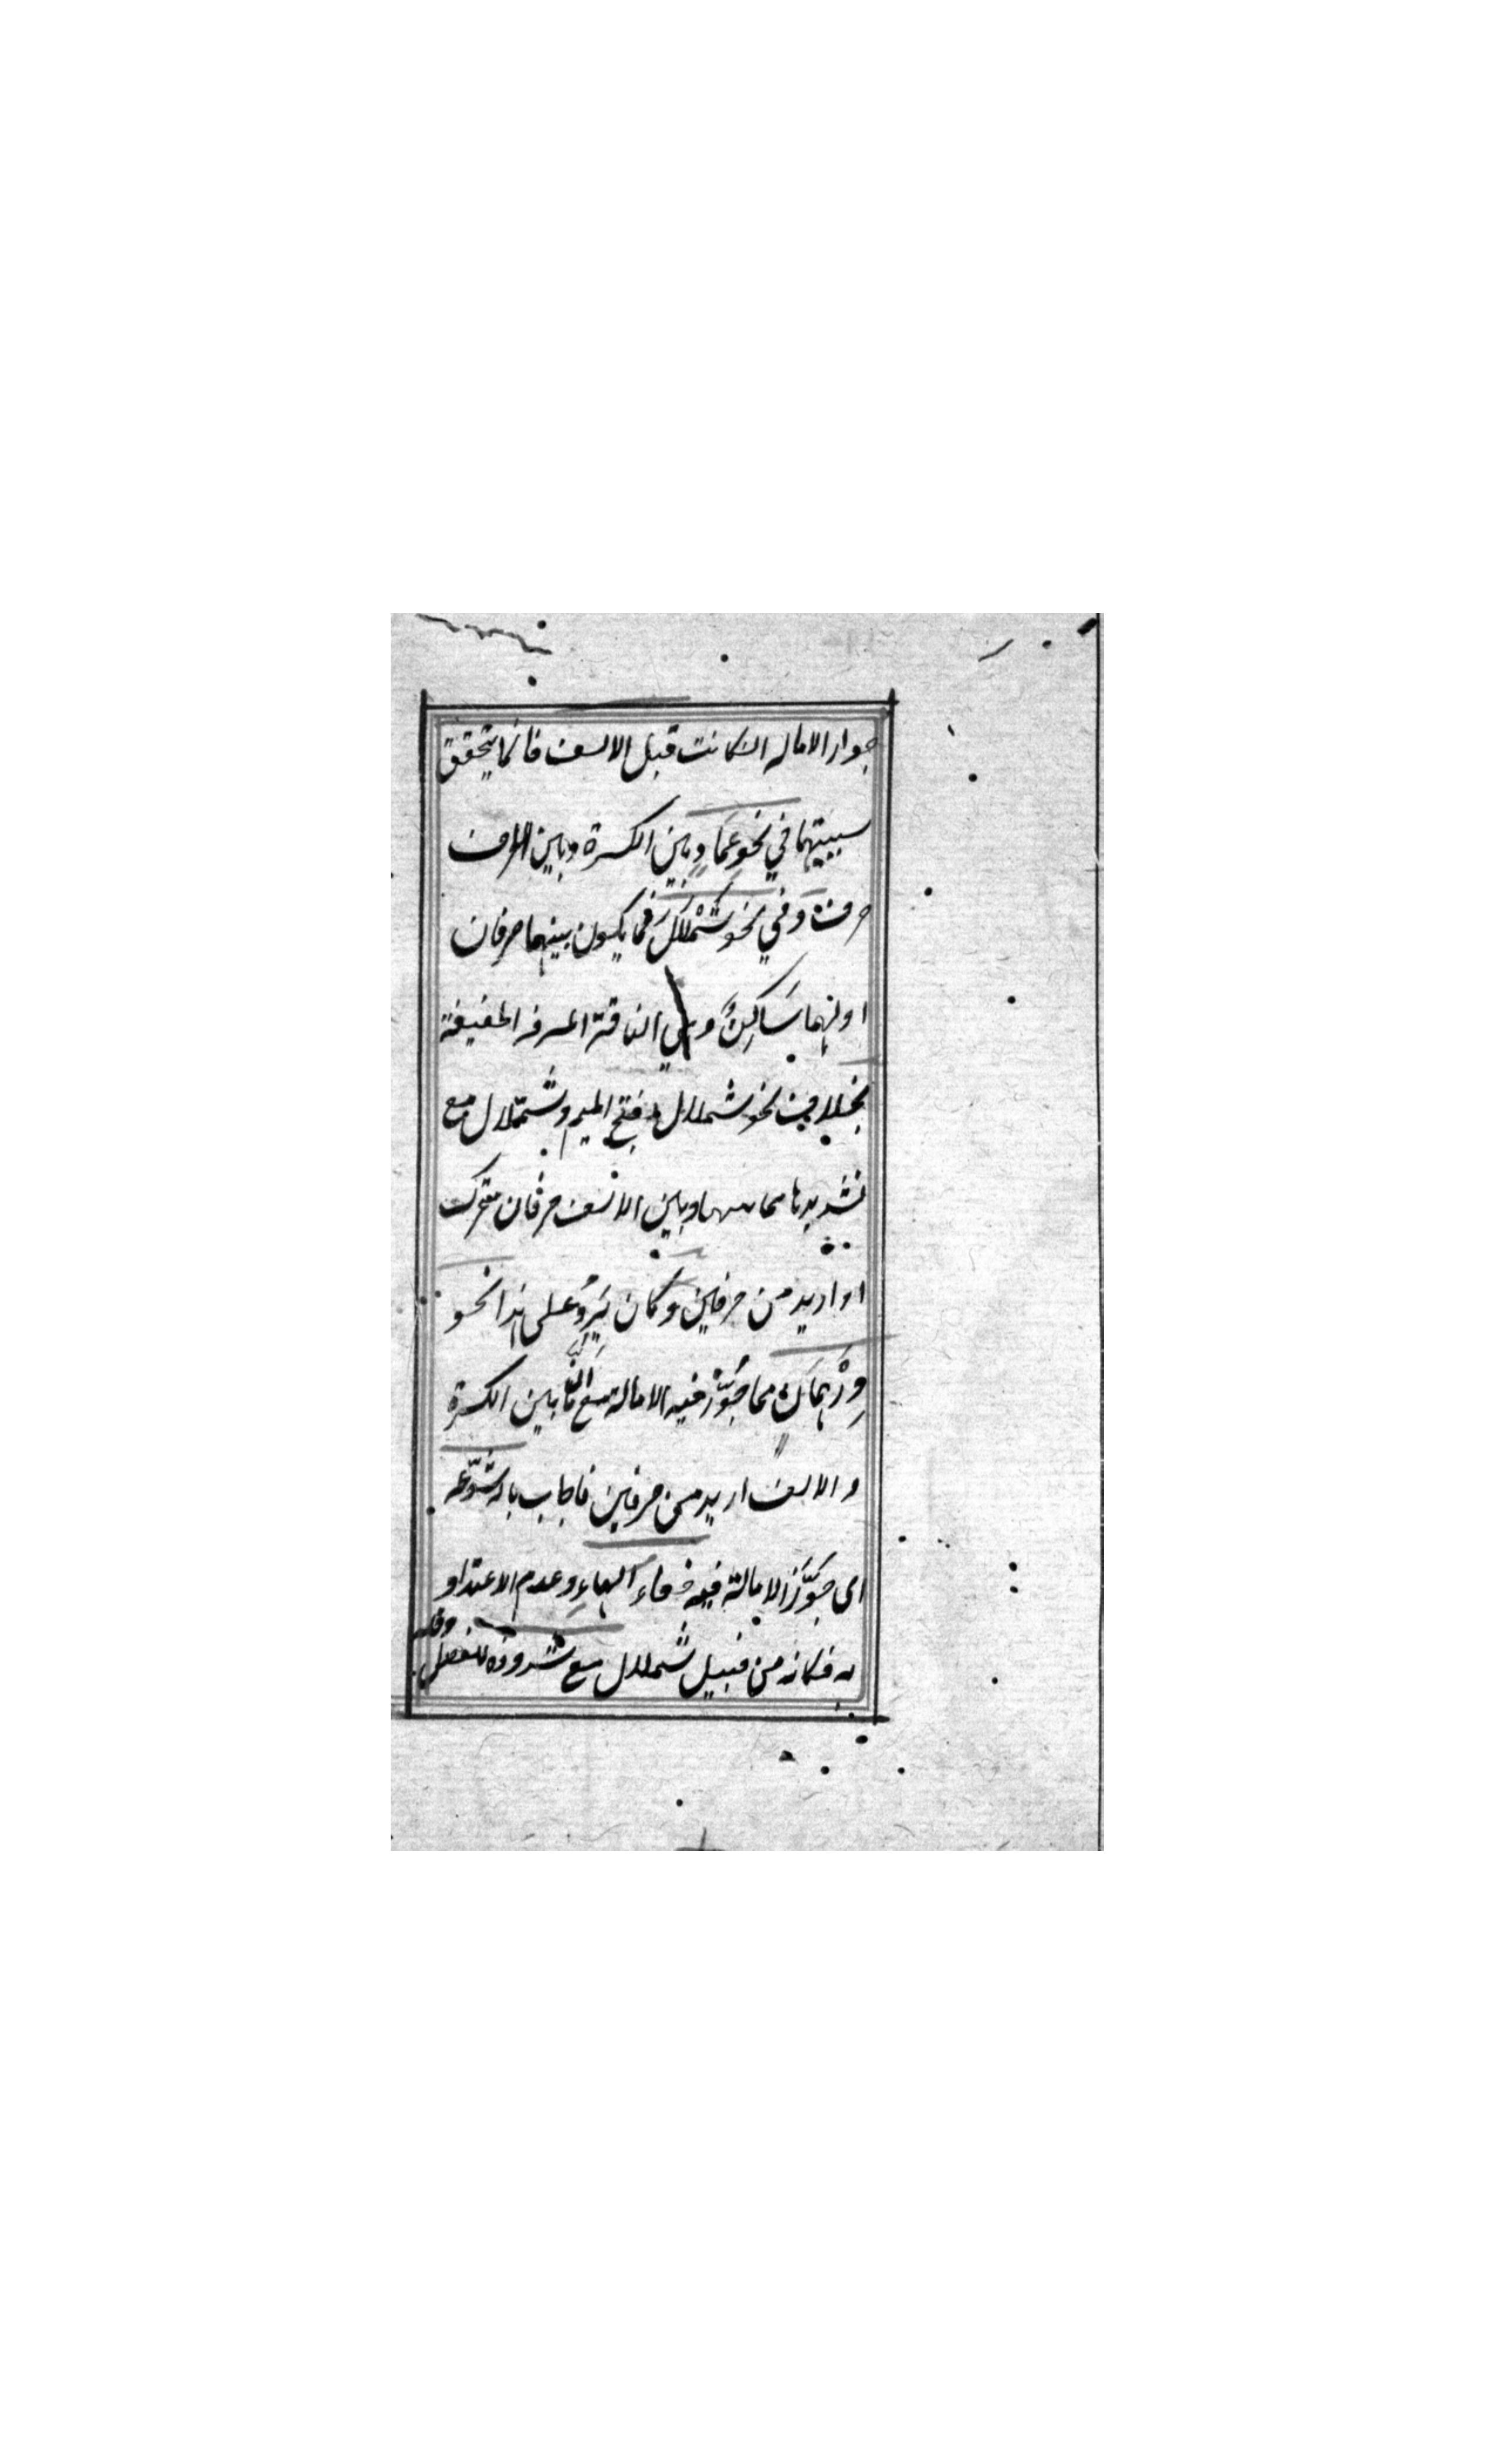 جواز الاماله ان كانت قبل الالف فانما يتحقق
سببيتهما في نحو عِمَادٍ وبين الكسرة وبين الالف
حرف وَفي نحو شِمْلَالٍ فيما يكون بينهما حرفان
اولهما سَاكِنٌ وهي الناقة السرفه الخفيفة
بخلاف نحو شملال بفتح الميم وشمّلال مع
تشديدها مما بينها وبين الالف حرفان متحرك
او ازيد من حرفين وكان يَرِدُ على هذا نحو
دِرْهَمَانِ مما جُوِّزَ فيه الامالة مع اَنَّ ما بين الكسرة
و الالف ازيد من حرفين فاجاب بانه سَوَّغَه
اى جَوَّزَ الامالة فيه خفاء الهاءِ وعدم الاعتداد
به فكانه من قبيل شملال مع شذوذه للفصل